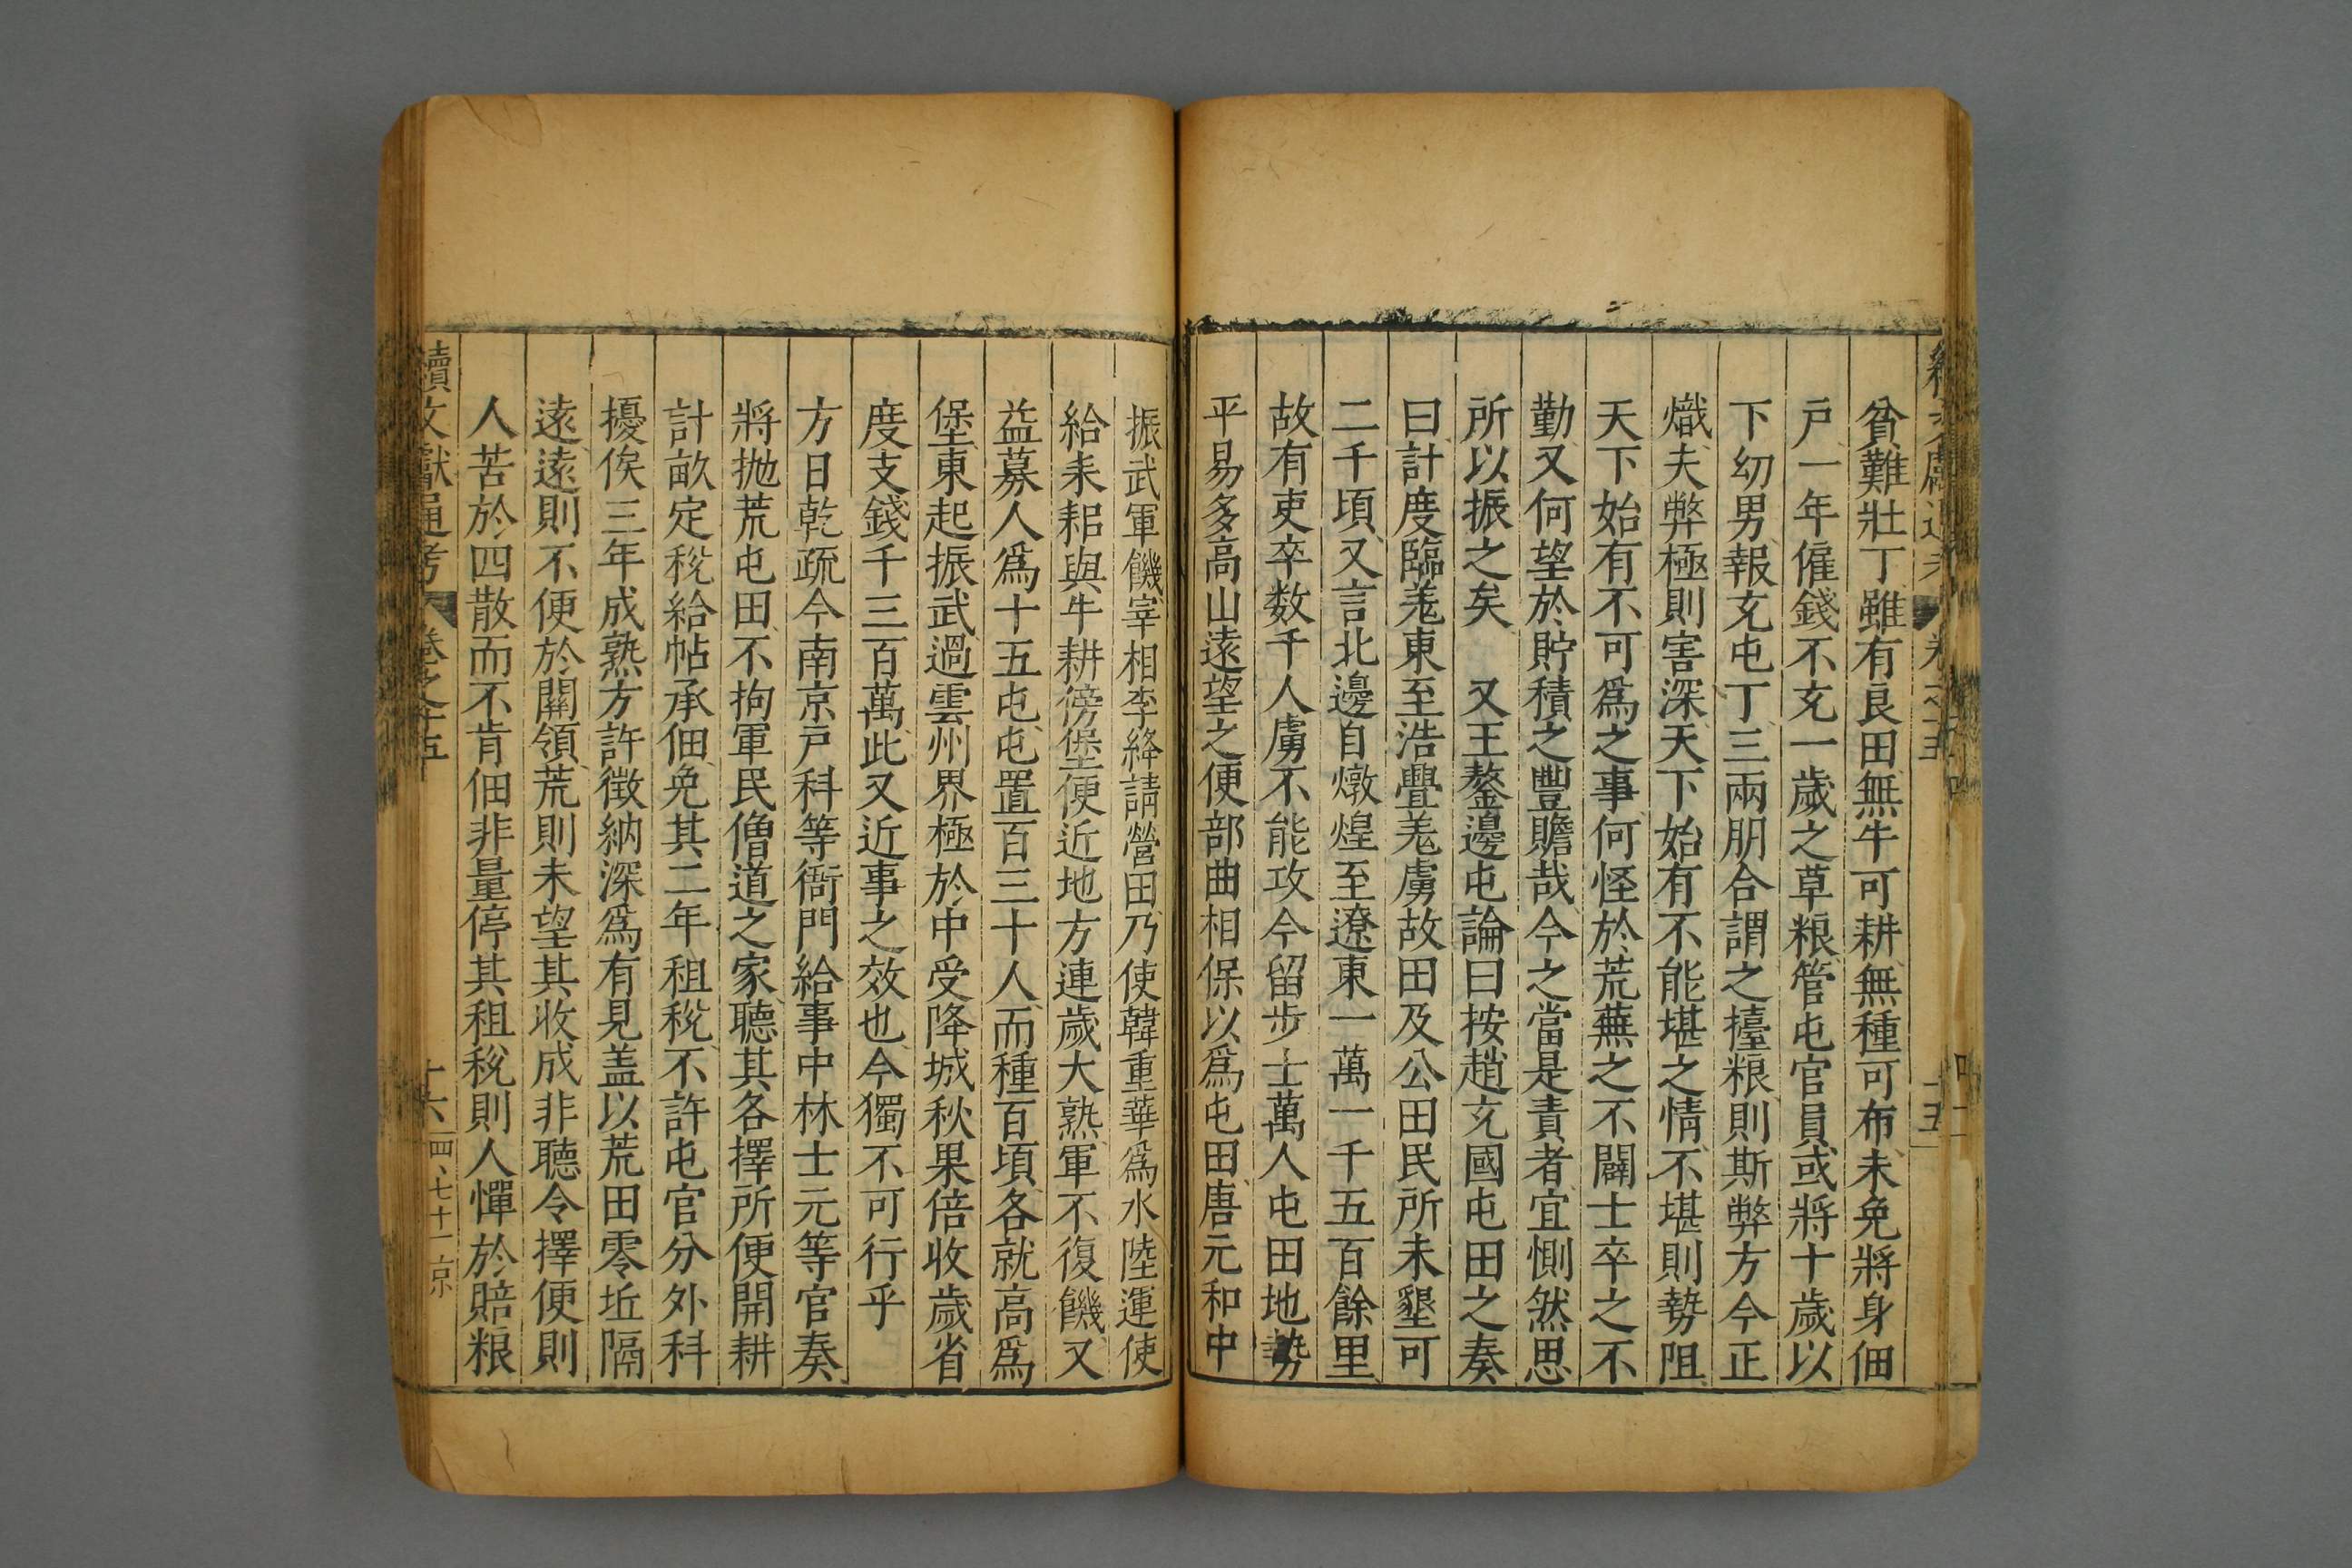 貧難壯丁雖有良田無牛可耕無種可布未免將身佃
戶一年僱錢不充一歲之草粮管屯官員或將十歲以
下幼男報充屯丁三兩朋合謂之擡粮則斯弊方今正
熾夫弊極則害深天下始有不能堪之情不堪則勢阻
天下始有不可爲之事何怪於荒蕪之不闢士卒之不
勤又何望於貯積之豐贍哉今之當是責者宜惻然思
所以振之矣　又王鏊邊屯論曰按趙充國屯田之奏
曰計度臨羗東至浩亹羗虜故田及公田民所未墾可
二千頃又言北邊自燉煌至遼東一萬一千五百餘里
故有吏卒数千人虜不能攻今留步士萬人屯田地勢
平易多高山遠望之便部曲相保以爲屯田唐元和中
振武軍饑宰相李絳請營田乃使韓重華爲水陸運使
給耒耜與牛耕傍堡便近地方連歲大熟軍不復饑又
益募人爲十五屯屯置百三十人而種百頃各就高爲
堡東起振武過雲州界極於中受降城秋果倍收歲省
度支錢千三百萬此又近事之效也今獨不可行乎
方日乾疏今南京戶科等衙門給事中林士元等官奏
將抛荒屯田不拘軍民僧道之家聽其各擇所便開耕
計畝定稅給帖承佃免其二年租稅不許屯官分外科
擾俟三年成熟方許徵納深爲有見盖以荒田零坵隔
遠遠則不便於關領荒則未望其收成非聽令擇便則
人苦於四散而不肯佃非量停其租稅則人憚於賠粮
續文獻通考　卷之十五　十六　四七十一　京